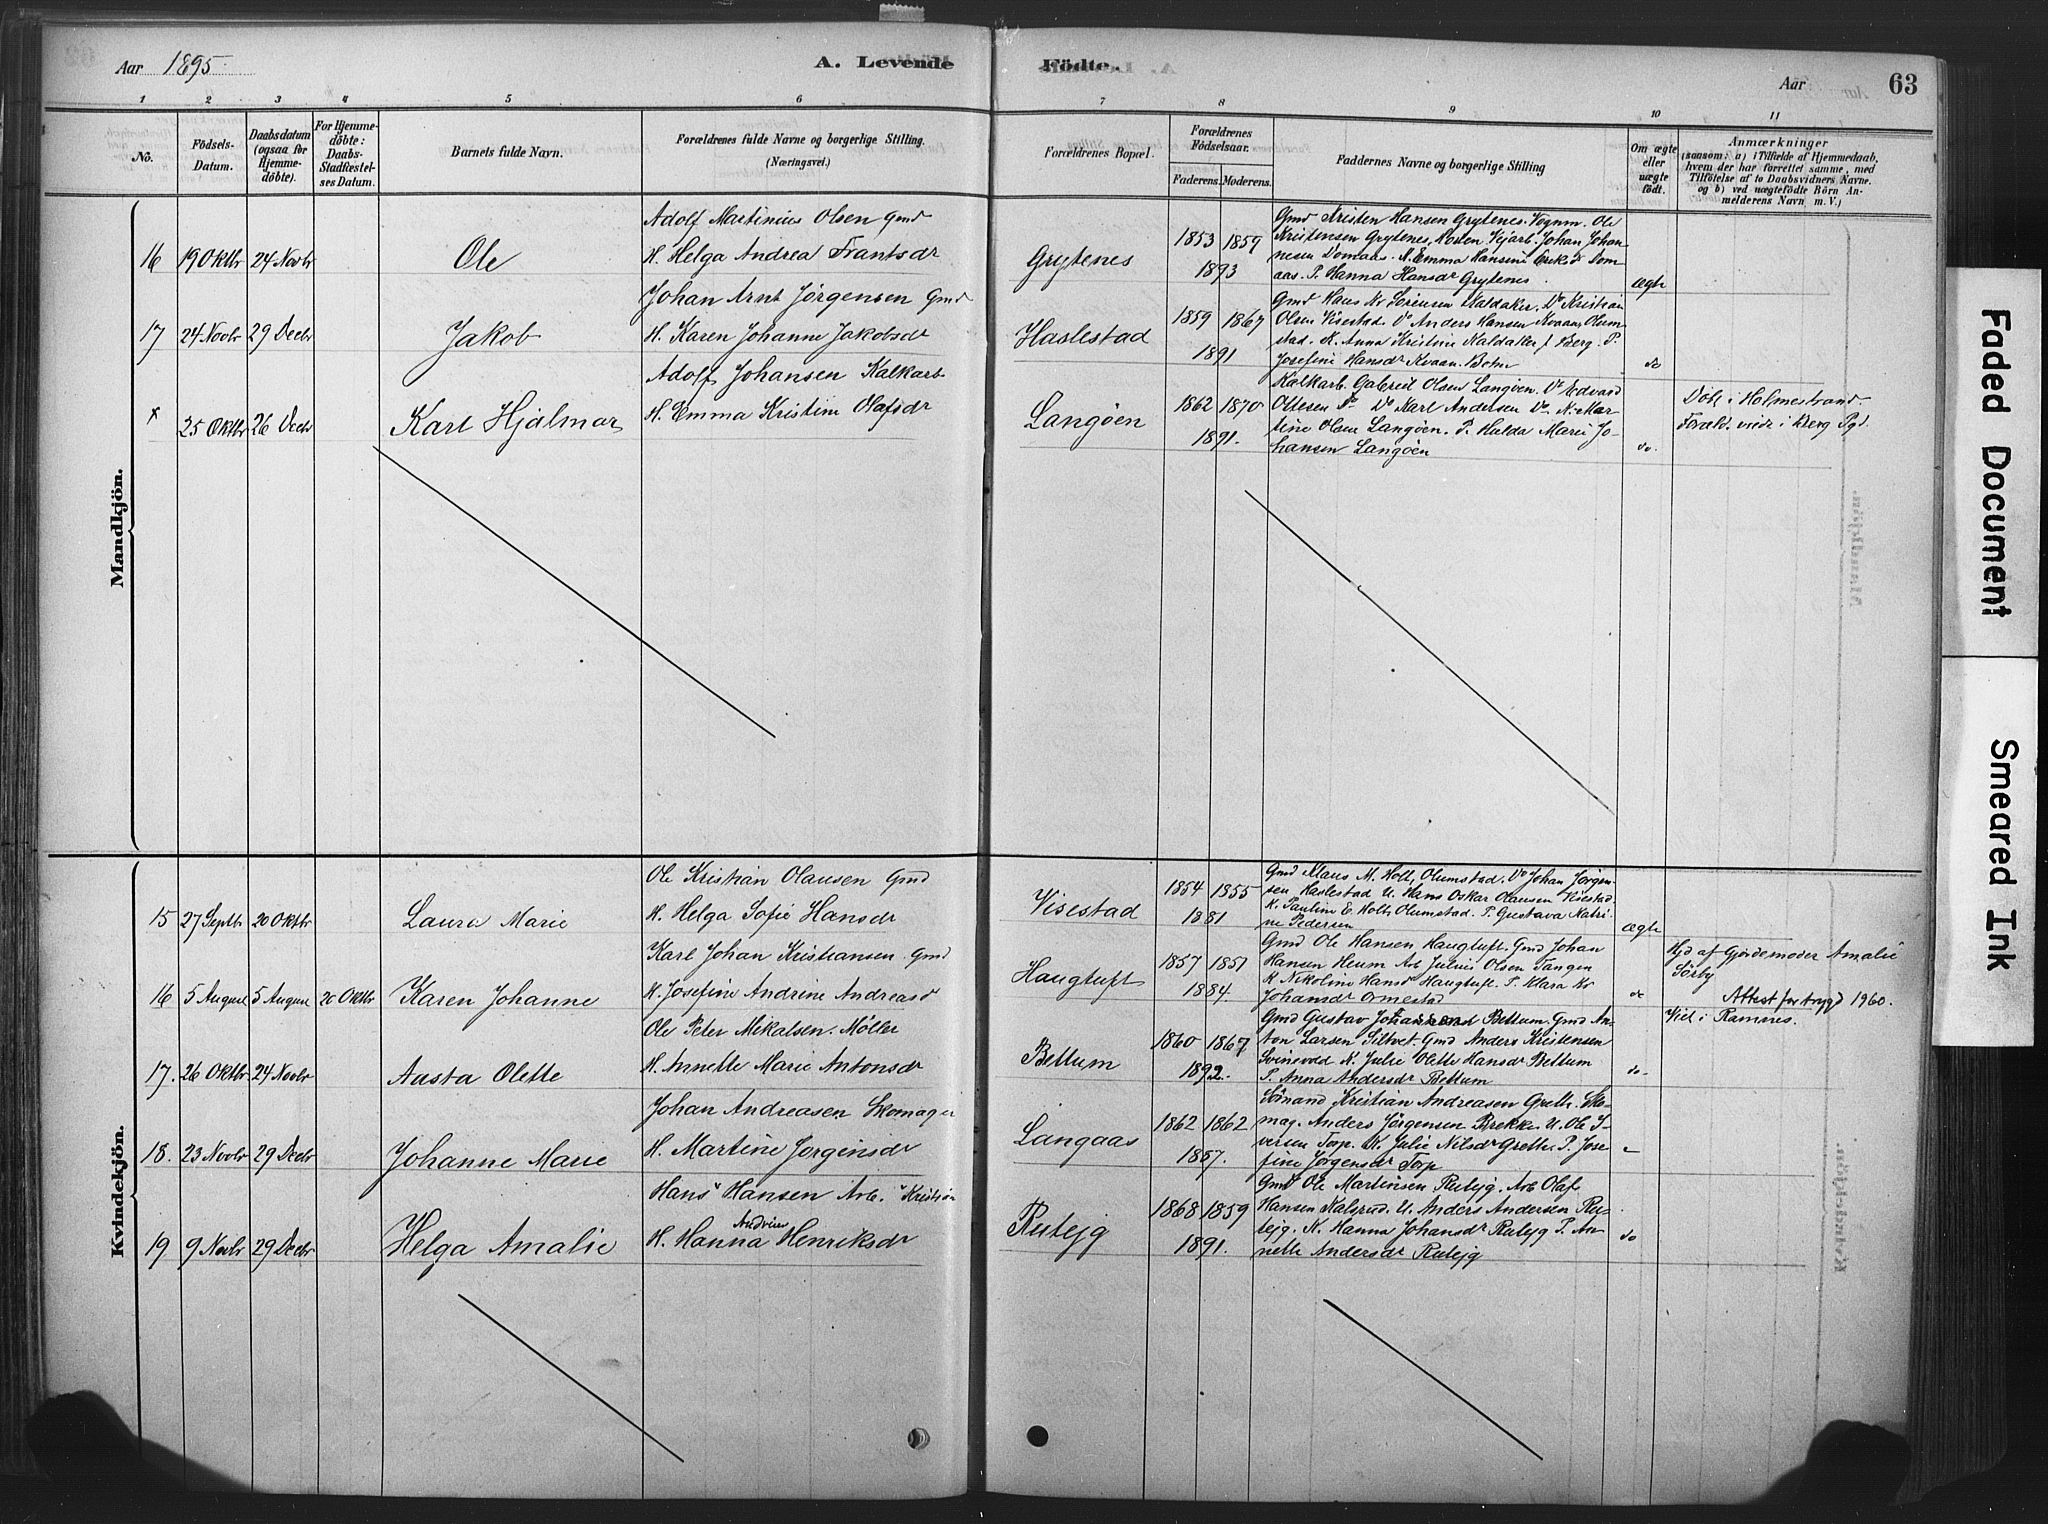 Aar 1895.
A. Levende
Födte.
Aar
63
1 2 3 4 5 6 7 8 9 10 11
No.
Födsels-
Datum.
Daabsdatum
(ogsaa for
Hjemme-
döbte).
For Hjemme-
döbte:
Daabs-
Stadfæstel-
ses Datum.
Barnets fulde Navn.
Forældrenes fulde Navne og borgerlige Stilling.
(Næringsvei.)
Forældrenes Bopæl.
Forældrenes
Födselsaar.
Faderens. Moderens.
Faddernes Navne og borgerlige Stilling
Om ægte
eller
uægte
födt.
Anmærkninger
(saasom: a) i Tilfælde af Hjemmedaab,
hvem der har forrettet samme, med
Tilföielse af to Daabsvidners Navne,
og b) ved uægtefödte Börn An-
melderens Navn m. V.)
Mandkjön.
16 19 Oktbr 24 Novbr Ole
Adolf Martinius Olsen Gmd
H. Helga Andrea Frantsdr
Grytenes
1853 1859
1893
Gmd Kristen Hansen Grytenes. Vognm. Ole
Kristensen Grytenes, Morten Vejarb. Johan Johan-
nesen Domaas. K. Emma Hansine Eriksd Dom-
aas. P. Hanna Hansdr Grytenes.
ægte
17 24 Novbr 29 Decbr Jakob
Johan Arnt Jørgensen Gmd
H. Karen Johanne Jakobsdr
Haslestad
1859 1867
1891
Gmd Hans Kr Sørensen Kaldaker. Do Kristian
Olsen Visestad. Do Anders Hansen Kvaan, Olum-
stad. K. Anna Kristine Kaldaker f. Berg. P.
Josefine Hansdr Kvaan. Botne
do
x 25 Oktbr 26 Decbr Karl Hjalmar
Adolf Johansen Kalkarb.
H. Emma Kristine Olafsdr
Langöen
1862 1870
1891.
Kalkarb. Gabriel Olsen Langöen. Do Edvard
Ottesen Do Do Karl Andersen Do. K. Mar-
tine Olsen Langöen. P. Hulda Marie Jo-
hansen Langöen
do.
Döbt i Holmestrand
Foræld. viede i Berg Pgd.
Kvindekjön.
15 27 Septbr 20 Oktbr Laura Marie
Ole Kristian Olausen Gmd
H. Helga Sofie Hansdr
Visestad
1854 1855
1881
Gmd Klaus M. Holt, Olumstad. Do Johan Jørgen-
sen Haslestad U. Hans Oskar Olausen Visestad.
K. Pauline E. Holt, Olumstad. P. Gustava Katri-
ne Pedersen
ægte
16 5 August 5 August 20 Oktbr Karen Johanne
Karl Johan Kristiansen Gmd
H. Josefine Andrine Andreasd
Haugtuft
1857 1851
1884
Gmd Ole Hansen Haugtuft. Gmd Johan
Hansen Heum Arb Julius Olsen Tangen
K Nikoline Hansd Haugtuft. P. Klara Kr
Johansdr Ormestad
do
Hjd af Gjordemoder Amalie
Sörby
Attest for trygd 1960.
17. 26 Oktbr 24 Novbr Aasta Olette
Ole Peter Mikalsen. Møller
H. Annette Marie Antonsdr
Bettum
1860 1867
1892.
Gmd Gustav Johannesen Bettum. Gmd An-
ton Larsen Siltvet Gmd Anders Kristensen
Svinevold K. Julie Olette Hansdr Bettum
P. Anna Andersdr Bettum
do
Viet i Ramnes.
18. 23 Novbr 29 Decbr Johanne Marie
Johan Andreasen Skomager
H. Martine Jørgensdr
Langaas
1862 1862
1887.
Sömand Kristian Andreasen Greth. Sko-
mag. Anders Jørgensen Brekke. U. Ole I-
versen Torp. K. Julie Nilsdr Greth. P. Jose-
fine Jørgensdr Torp
19 9 Novbr 29 Decbr Helga Amalie
Hans Hansen Arb.
Andrine
H. Hanna Henriksdr
Rutejg
1868 1859
1891.
Gmd Ole Martinsen Rutejg. Arb Olaf
Hansen Kalsrud. U. Anders Andersen Ru-
tejg. K. Hanna Johansdr Rutejg P. An-
nette Andersdr Rutejg
do
Faded Document
Smeared Ink